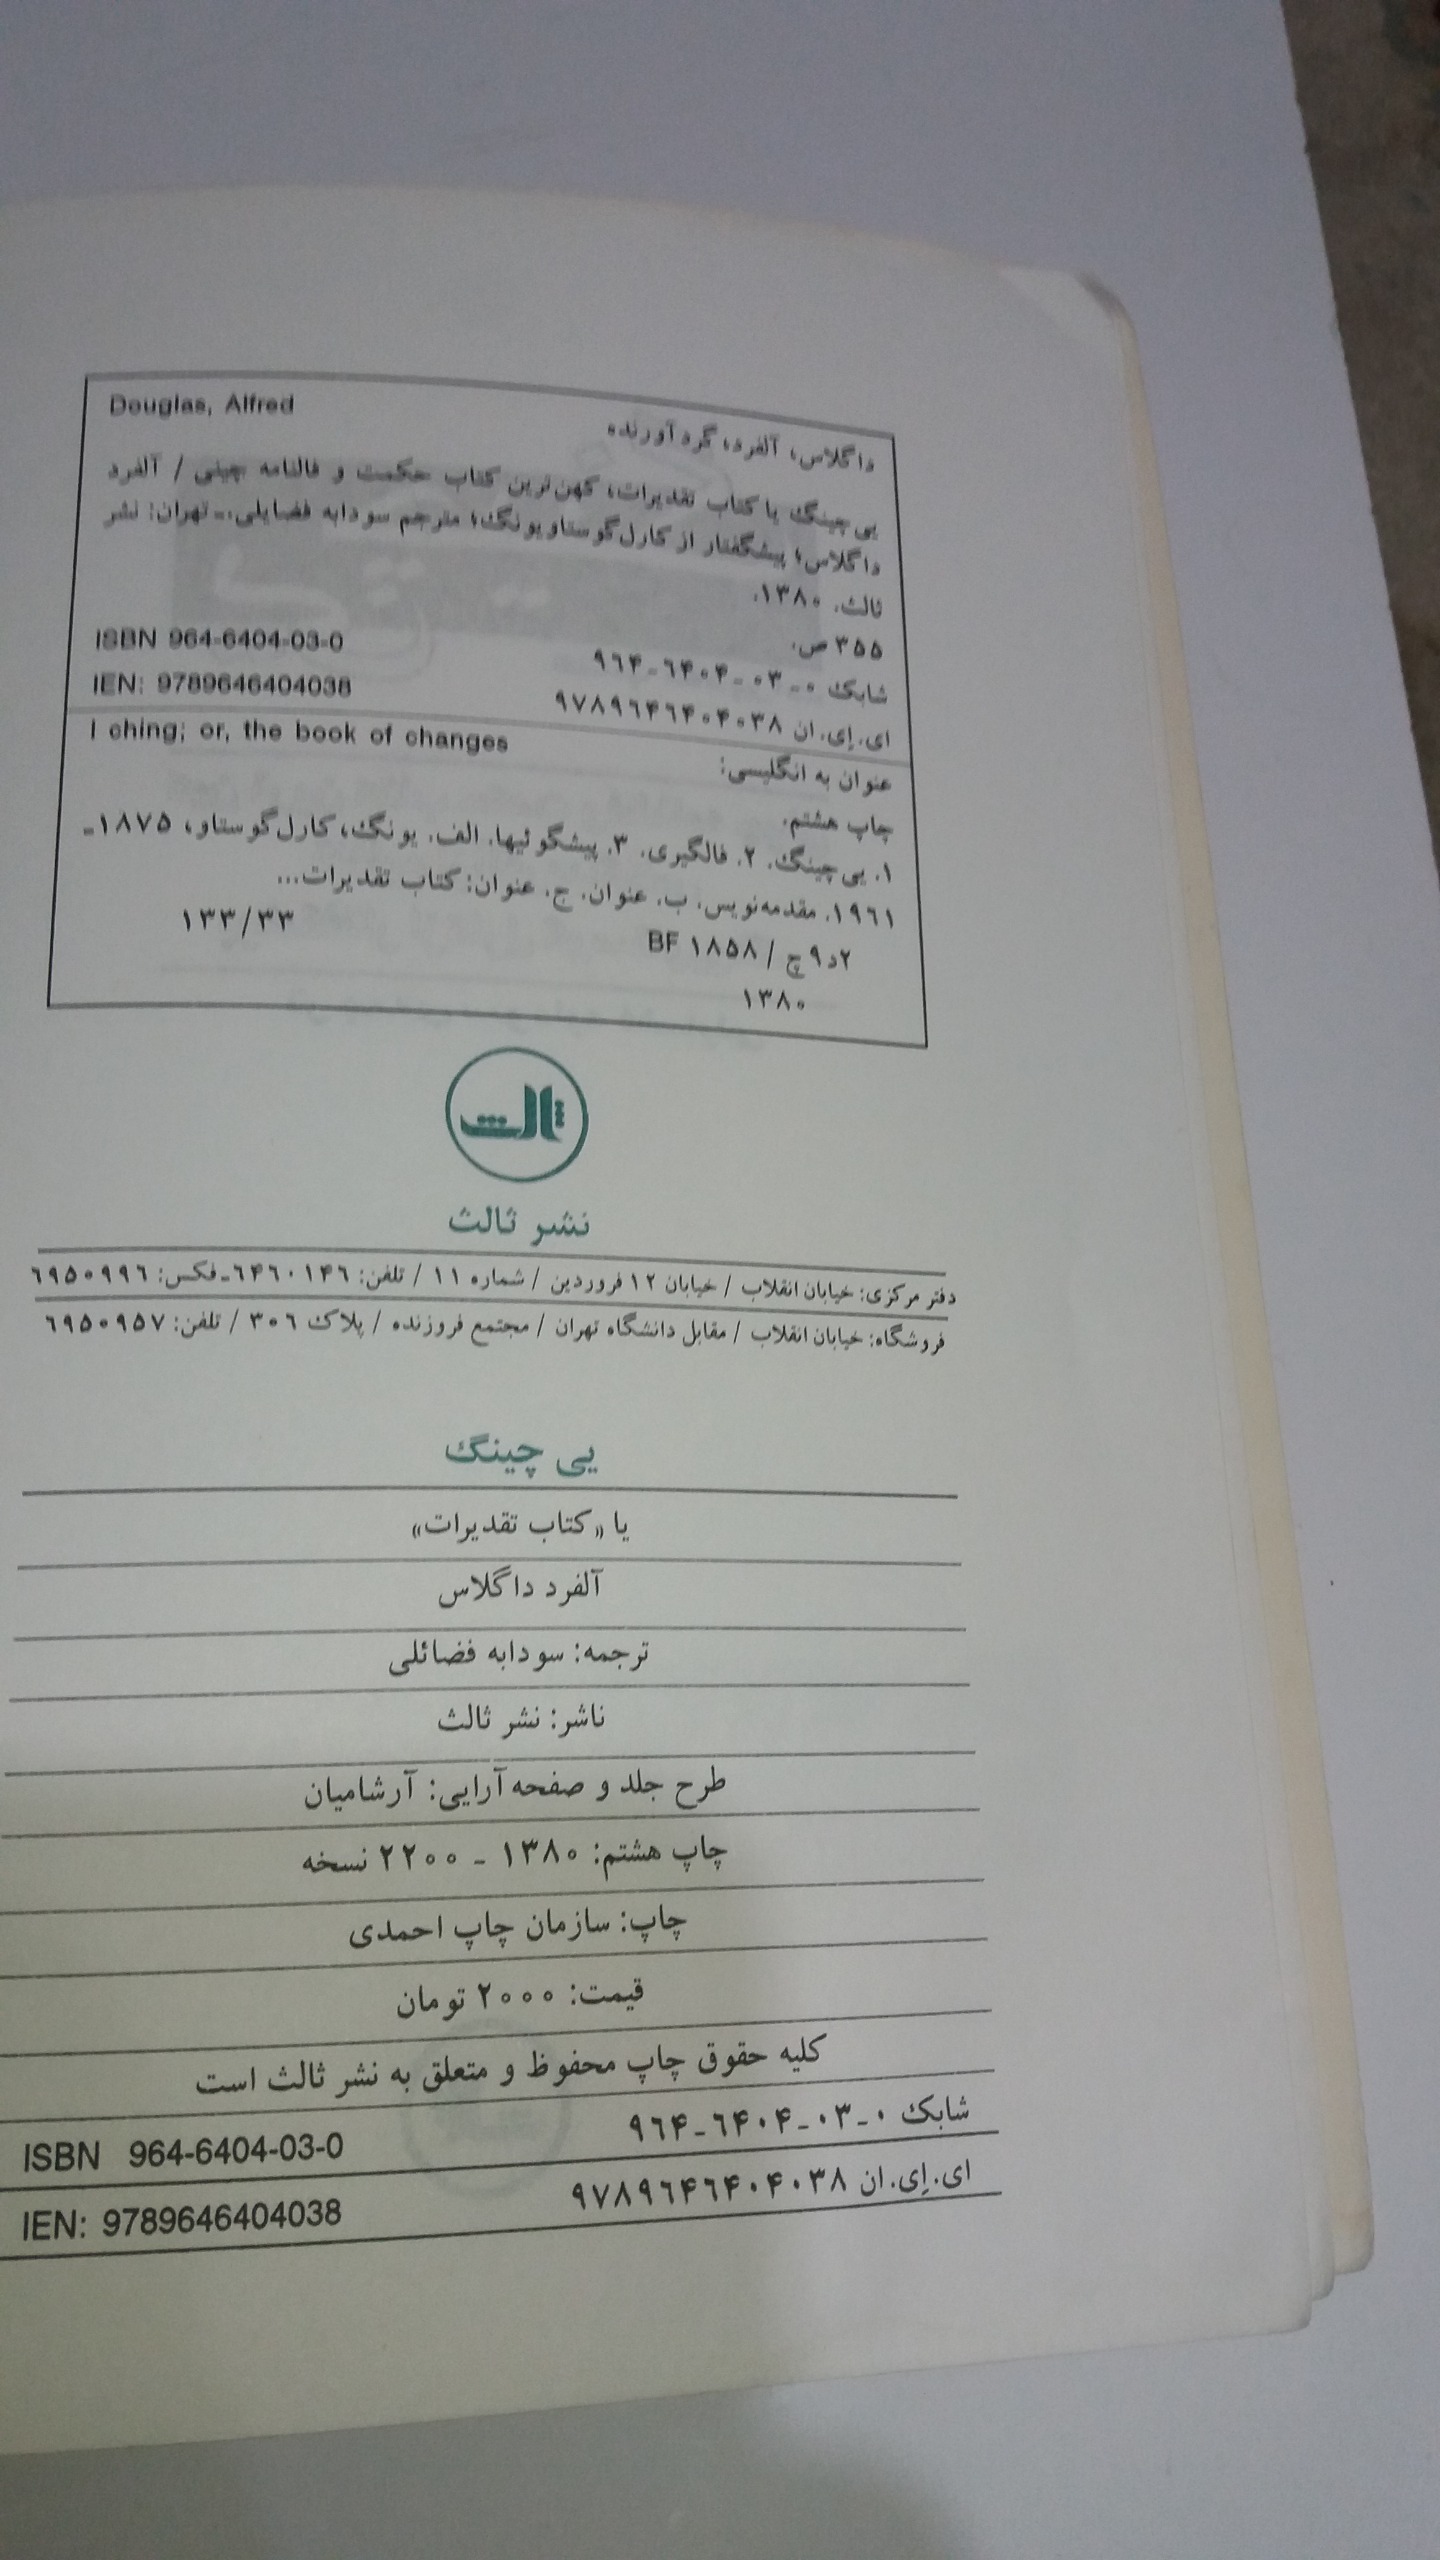 Douglas, Alfred
داگلاس، آلفرد، گردآورنده
یی‌چینگ یا کتاب تقدیرات، کهن‌ترین کتاب حکمت و فالنامه چینی / آلفرد
داگلاس؛ پیشگفتار از کارل‌گوستاویونگ؛ مترجم سودابه فضایلی.ـ تهران: نشر
ثالث. ۱۳۸۰.
۳۵۵ ص.
ISBN 964-6404-03-0
شابک ۰-۰۳-۶۴۰۴-۹۶۴
IEN: 9789646404038
ای.اِی.ان ۹۷۸۹۶۴۶۴۰۴۰۳۸
I ching; or, the book of changes
عنوان به انگلیسی:
چاپ هشتم.
۱. یی‌چینگ. ۲. فالگیری. ۳. پیشگوئیها. الف. یونگ، کارل‌گوستاو، ۱۸۷۵ـ
۱۹۶۱. مقدمه‌نویس. ب. عنوان. ج. عنوان: کتاب تقدیرات...
۱۳۳/۳۳
۲د۹چ / BF ۱۸۵۸
۱۳۸۰
ثالث
نشر ثالث
دفتر مرکزی: خیابان انقلاب / خیابان ۱۲ فروردین / شماره ۱۱ / تلفن: ۶۴۶۰۱۴۶ـ فکس: ۶۹۵۰۹۹۶
فروشگاه: خیابان انقلاب / مقابل دانشگاه تهران / مجتمع فروزنده / پلاک ۳۰۶ / تلفن: ۶۹۵۰۹۵۷
یی چینگ
یا «کتاب تقدیرات»
آلفرد داگلاس
ترجمه: سودابه فضائلی
ناشر: نشر ثالث
طرح جلد و صفحه‌آرایی: آرشامیان
چاپ هشتم: ۱۳۸۰ - ۲۲۰۰ نسخه
چاپ: سازمان چاپ احمدی
قیمت: ۲۰۰۰ تومان
کلیه حقوق چاپ محفوظ و متعلق به نشر ثالث است
شابک ۰-۰۳-۶۴۰۴-۹۶۴
ISBN 964-6404-03-0
ای.اِی.ان ۹۷۸۹۶۴۶۴۰۴۰۳۸
IEN: 9789646404038